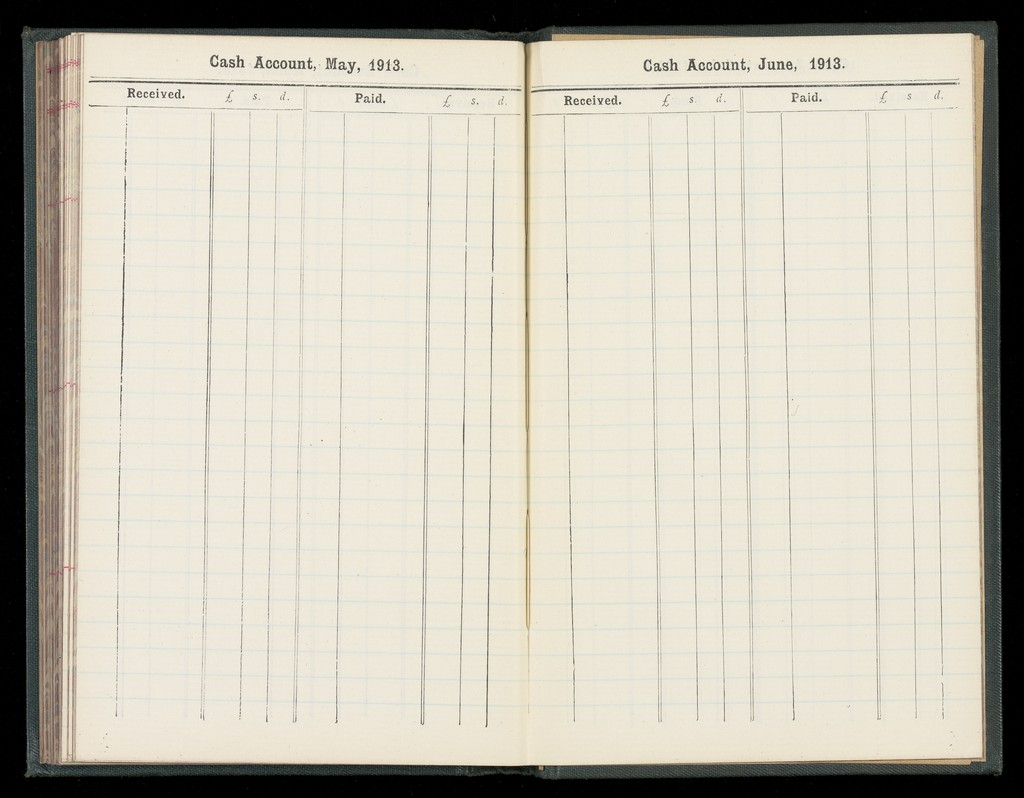 Cash Account, May, 1913.
Received. £ s. d. Paid. £ s. d.
Cash Account, June, 1913.
Received. £ s. d. Paid. £ s d.